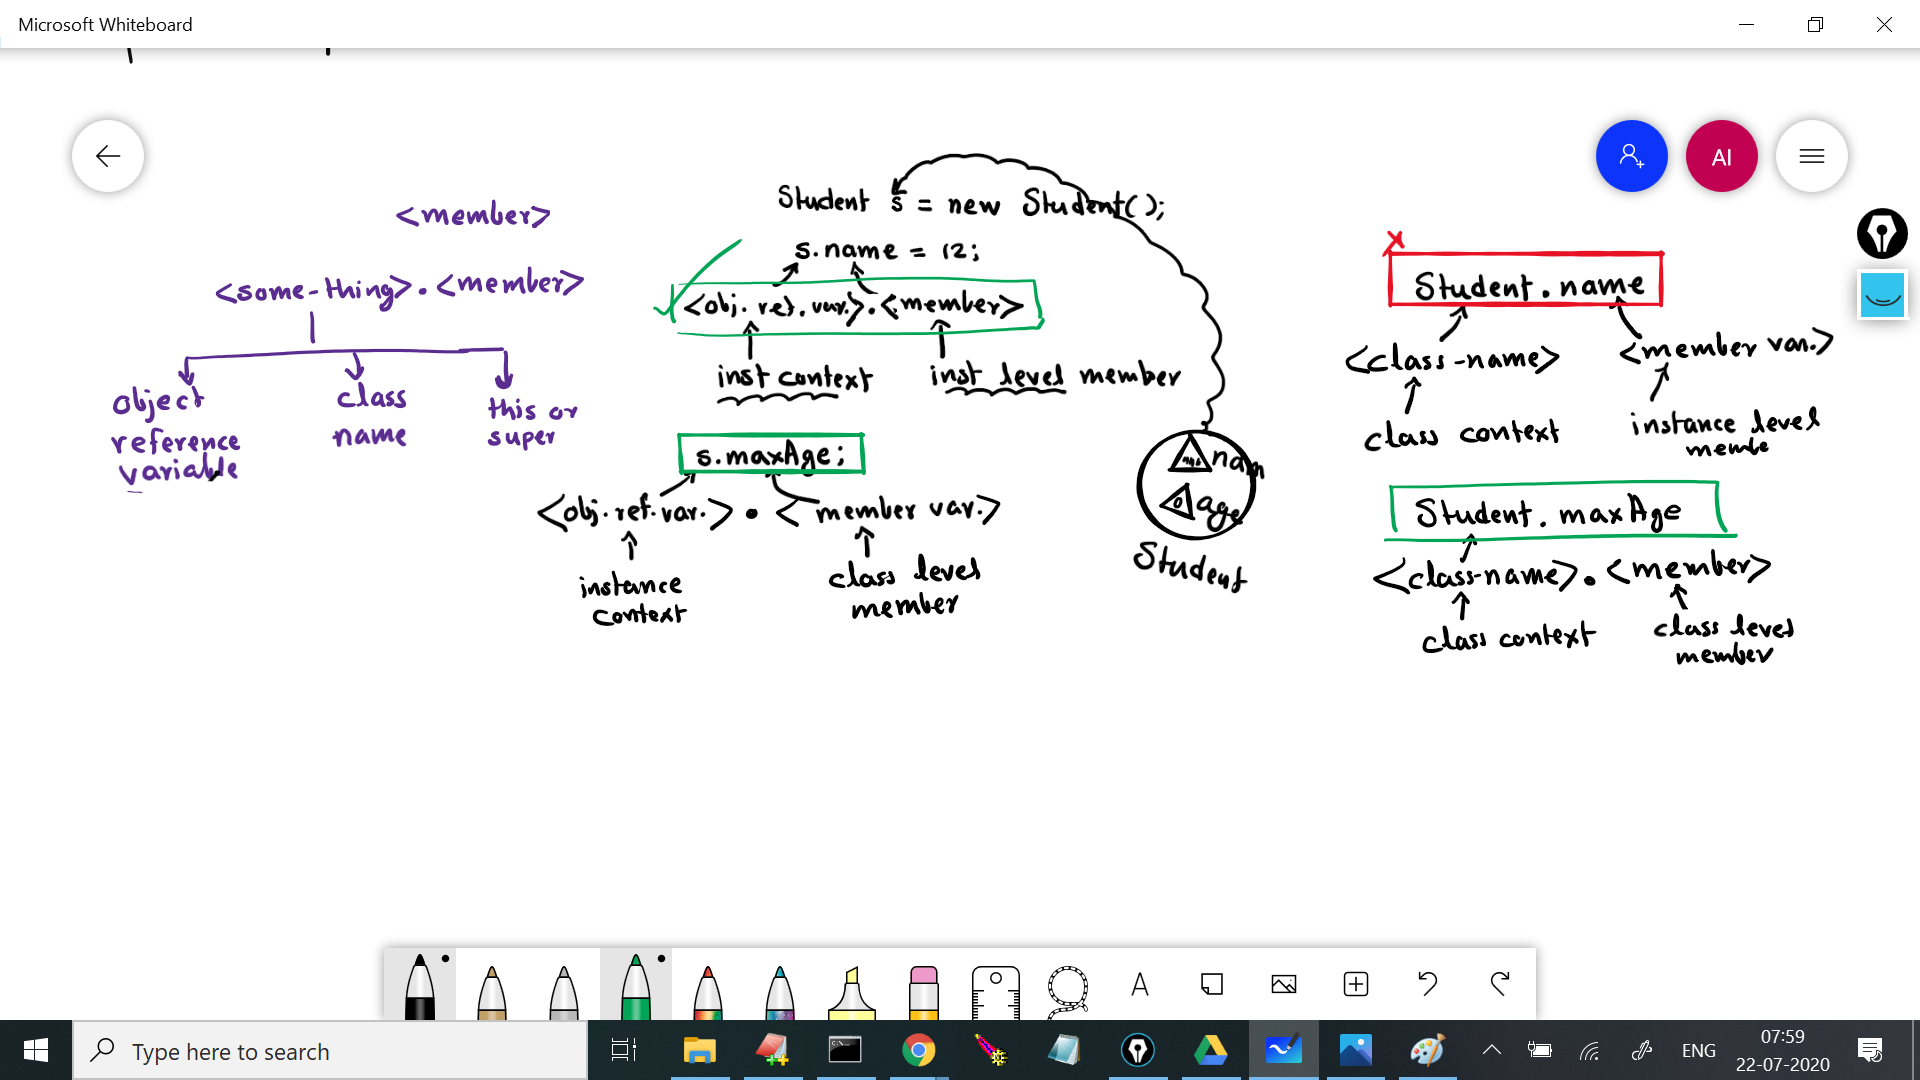 Microsoft Whiteboard
AI
<member>
<some-thing>.<member>
object
reference
variable
class
name
this or
super
Student s = new Student();
s.name = 12;
<obj. ref. var.>.<member>
inst context
inst level member
s.maxAge;
<obj.ref.var.>.<member var.>
instance
context
class level
member
nam
0
age
Student
x
Student.name
<class-name>
<member var.>
class context
instance level
membe
Student.maxAge
<class-name>.<member>
class context
class level
member
A
Type here to search
ENG
07:59
22-07-2020